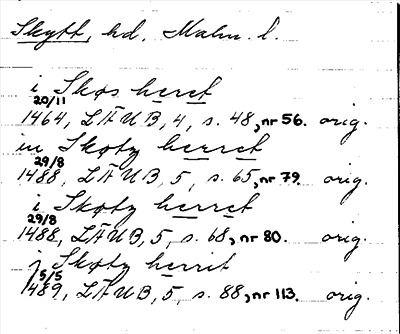 Skytt, hd, Malm. l.
i Skøs heret
20/11
1464, LÄUB, 4, s. 48, nr 56. orig.
in Skøtz herret
29/8
1488, LÄUB, 5, s. 65, nr 79. orig.
i Skøtz herret
29/8
1488, LÄUB, 5, s. 68, nr 80. orig.
j Skøtz herrit
5/5
1489, LÄUB, 5, s. 88, nr 113. orig.